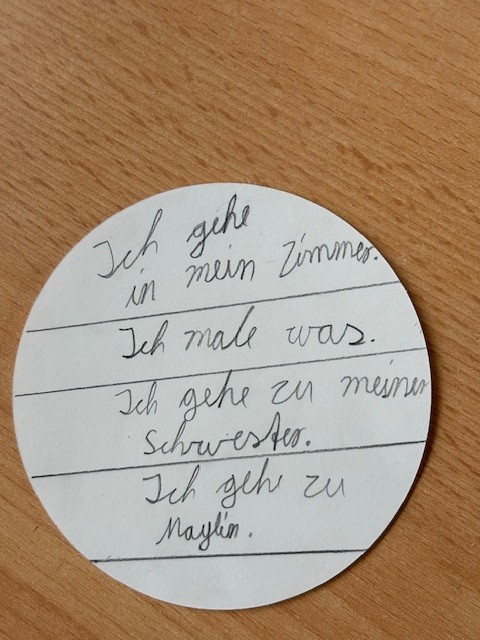 Ich gehe
in mein Zimmer.
Ich male was.
Ich gehe zu meiner
Schwester.
Ich geh zu
Maylin.